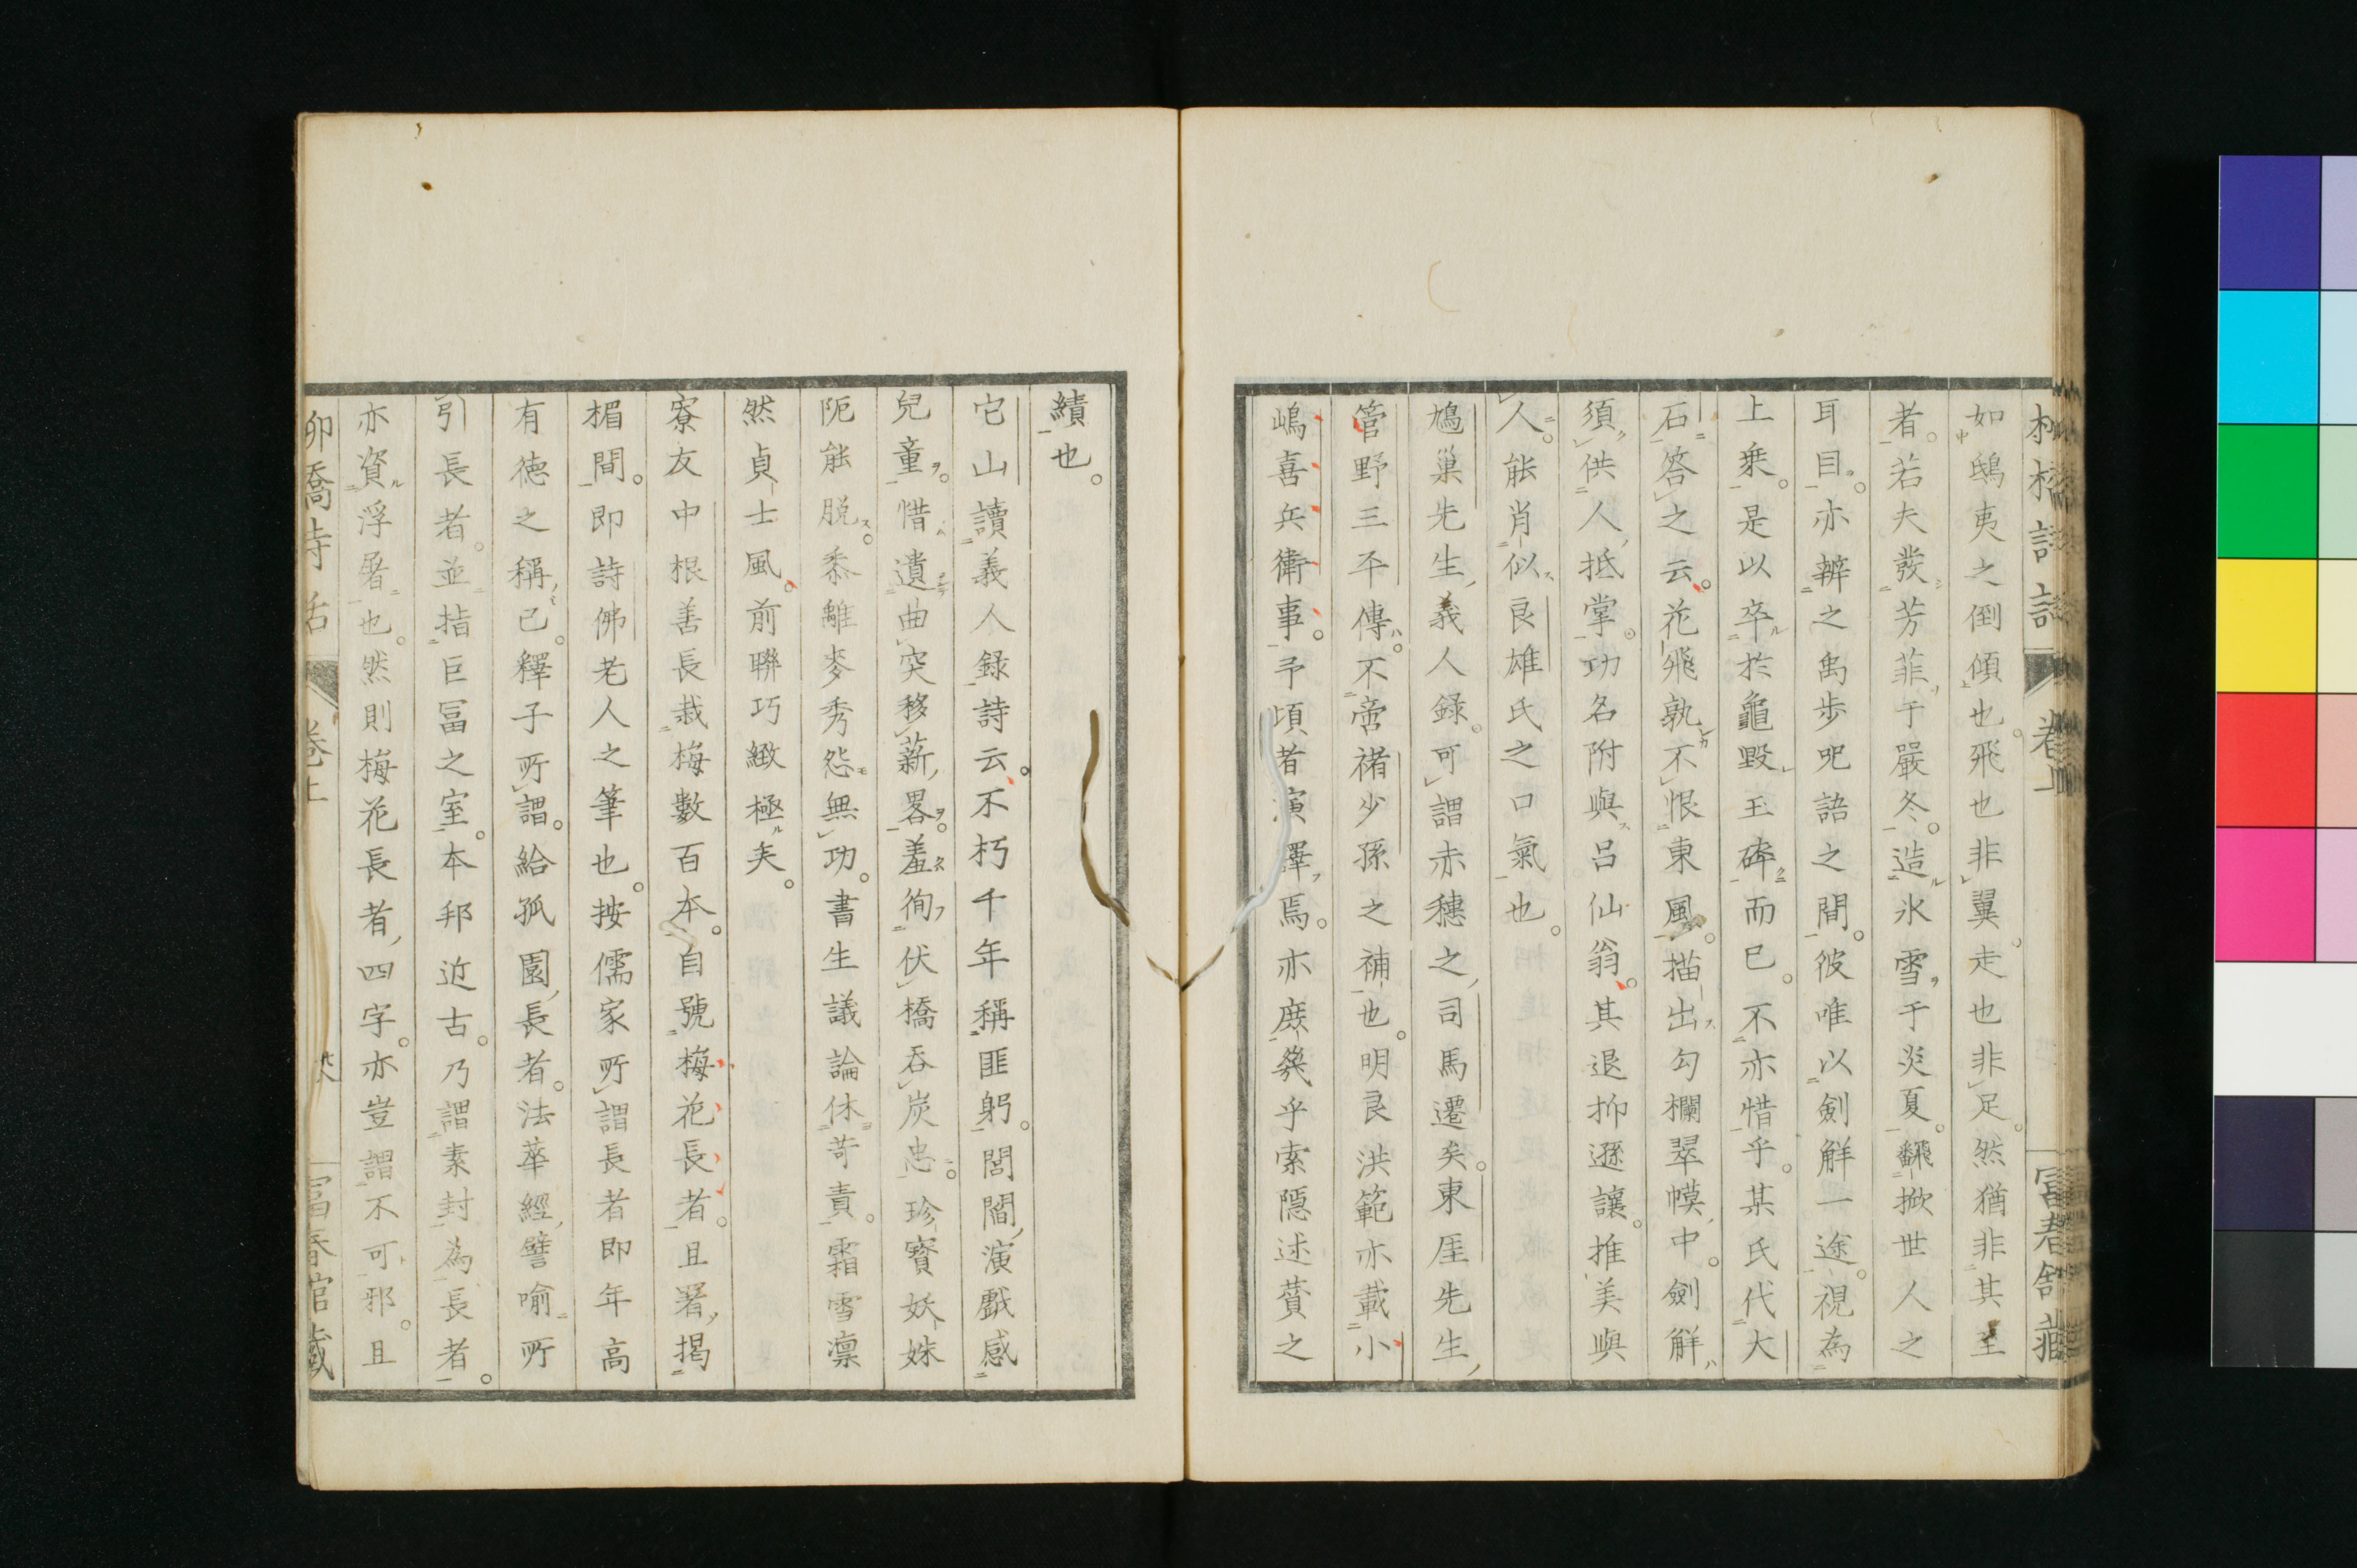 如鴟夷之倒傾也。飛也非翼。走也非足。然猶非其至
者。若夫發芳菲于嚴冬。造氷雪于炎夏。翻掀世人之
耳目。亦辨之禹歩呪語之間。彼唯以劍解一途。視為
上乗。是以卒於龜毀玉碎而已。不亦惜乎。某氏代大
石答之云。花飛孰不恨東風。描出勾欄翠幙中。劍解
須供人抵掌。功名附與呂仙翁。其退抑遜讓。推美與
人。能肖似良雄氏之口氣也。
鳩巢先生義人録。可謂赤穗之司馬遷矣。東厓先生
管野三平傳。不啻褚少孫之補也。明良洪範亦載小
嶋喜兵衛事。予頃者演譯焉。亦庶幾乎索隠述贊之
績也。
它山讀義人録詩云。不朽千年稱匪躬。閭閻演戲感
兒童。惜遺曲突移薪畧。羞徇伏橋吞炭忠。珍寳妖姝
阨能脱。黍離麥秀怨無功。書生議論休苛責。霜雪凛
然貞士風。前聯巧緻極矣。
寮友中根善長栽梅數百本。自號梅花長者。且署掲
楣間。即詩佛老人之筆也。按儒家所謂長者即年高
有徳之稱已。釋子所謂。給孤園長者。法華經譬喻所
引長者。並指巨冨之室。本邦近古。乃謂素封為長者。
亦資浮屠也。然則梅花長者四字。亦豈謂不可邪。且
柳橋詩話 卷上 富春館藏